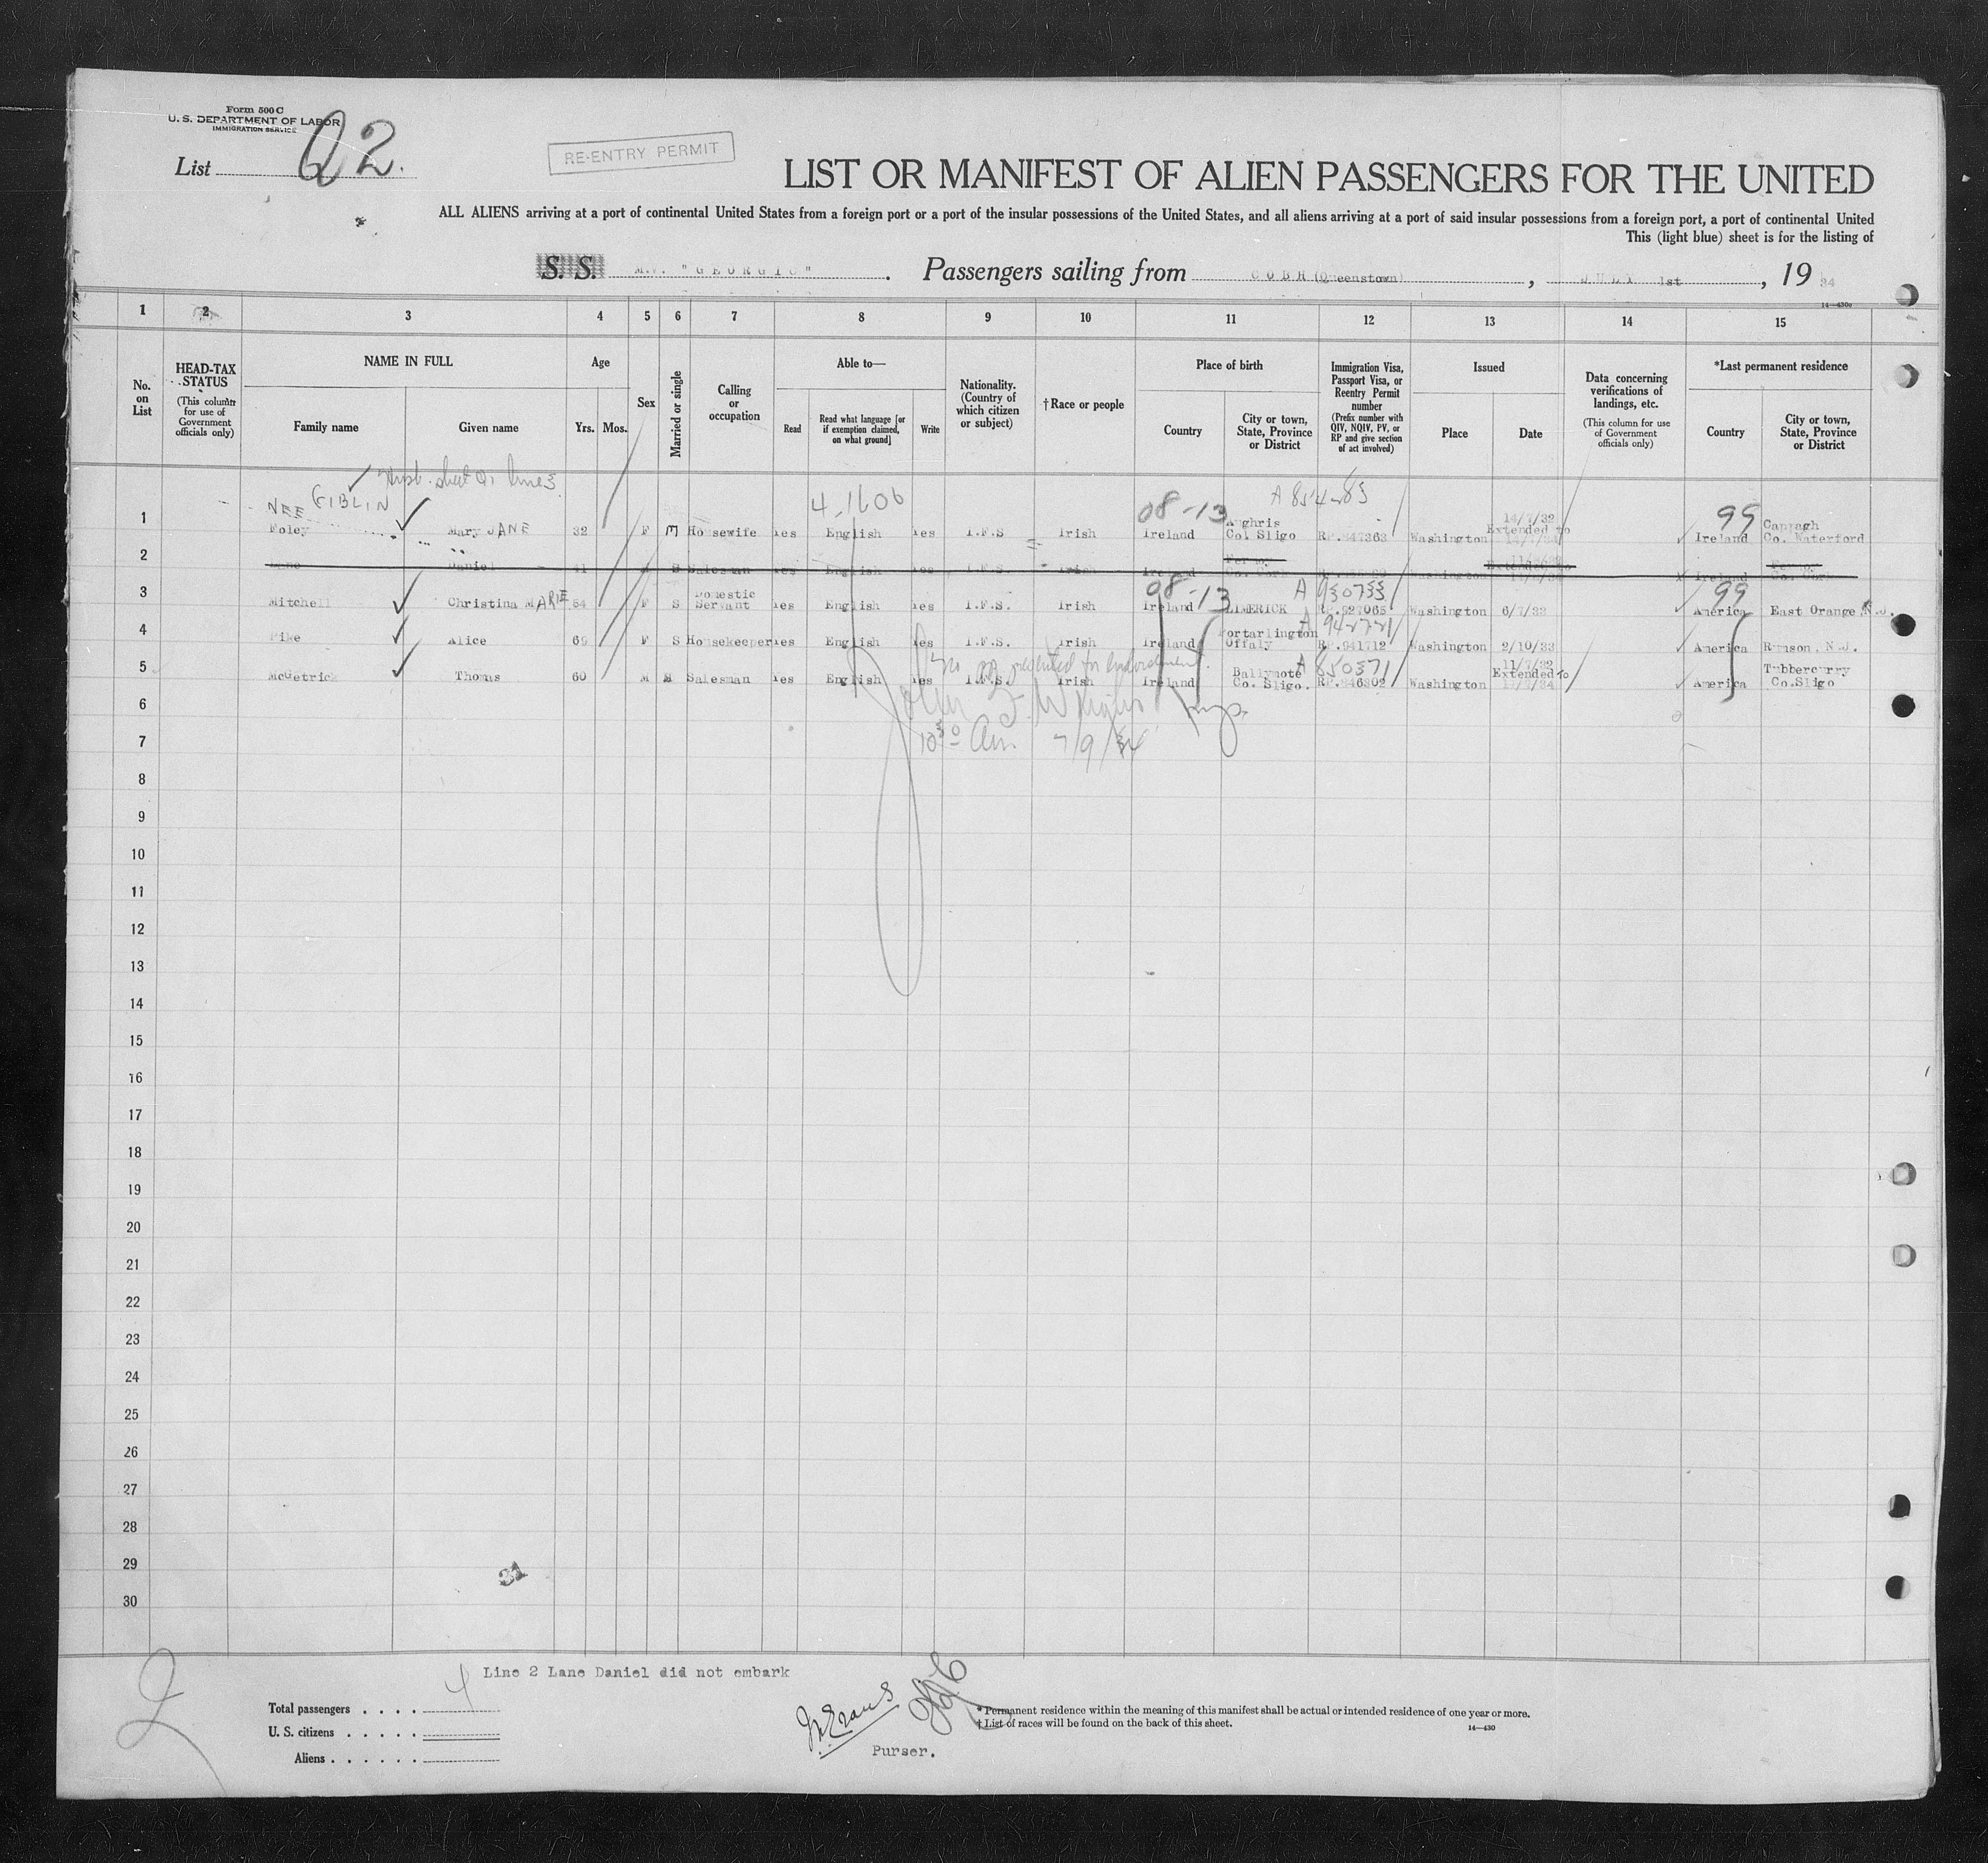 Form 500 C
U. S. DEPARTMENT OF LABOR
IMMIGRATION SERVICE
List Q2.
RE-ENTRY PERMIT
LIST OR MANIFEST OF ALIEN PASSENGERS FOR THE UNITED
ALL ALIENS arriving at a port of continental United States from a foreign port or a port of the insular possessions of the United States, and all aliens arriving at a port of said insular possessions from a foreign port, a port of continental United
This (light blue) sheet is for the listing of
S. S. M.V. "GEORGIC". Passengers sailing from COBH (Queenstown), JULY 1st, 19 34
14—430a
1 2 3 4 5 6 7 8 9 10 11 12 13 14 15
No. on List
HEAD-TAX STATUS
(This column for use of Government officials only)
NAME IN FULL
Family name
Given name
Age
Yrs.
Mos.
Sex
Married or single
Calling or occupation
Able to—
Read
Read what language [or if exemption claimed, on what ground]
Write
Nationality. (Country of which citizen or subject)
†Race or people
Place of birth
Country
City or town, State, Province or District
Immigration Visa, Passport Visa, or Reentry Permit number
(Prefix number with QIV, NQIV, PV, or RP and give section of act involved)
Issued
Place
Date
Data concerning verifications of landings, etc.
(This column for use of Government officials only)
*Last permanent residence
Country
City or town, State, Province or District
Husb. sheet Q1 line 3
NEE GIBLIN 4-1606 08-13 A 854283 99
1 Foley Mary JANE 32 F M Housewife Yes English Yes I.F.S Irish Ireland Aughris Co. Sligo RP.847363 Washington 14/7/32 Extended to Ireland Cappagh Co. Waterford
2 Lane Daniel 41 S Salesman Yes English Yes I.F.S. Irish Ireland Co. Cork Washington Extended to Ireland Co. Cork
08-13 A 930733 99
3 Mitchell Christina MARIE 54 F S Domestic Servant Yes English Yes I.F.S. Irish Ireland LIMERICK RP.927065 Washington 6/7/33 America East Orange N.J.
A 942721
4 Pike Alice 69 F S Housekeeper Yes English Yes I.F.S. Irish Ireland Portarlington Offaly RP.941712 Washington 2/10/33 America Rumson, N.J.
no presented for endorsement.
A 850371
5 McGetrick Thomas 60 M M Salesman Yes English Yes I.F.S. Irish Ireland Ballymote Co. Sligo. RP.846302 Washington 11/7/32 Extended to America Tubbercurry Co.Sligo
6
10 30 Am. 7/9/34
7
8
9
10
11
12
13
14
15
16
17
18
19
20
21
22
23
24
25
26
27
28
29
31
30
Line 2 Lane Daniel did not embark
Total passengers . . . . 4
U. S. citizens . . . . .
Aliens . . . . . .
Purser.
* Permanent residence within the meaning of this manifest shall be actual or intended residence of one year or more.
† List of races will be found on the back of this sheet.
14—430